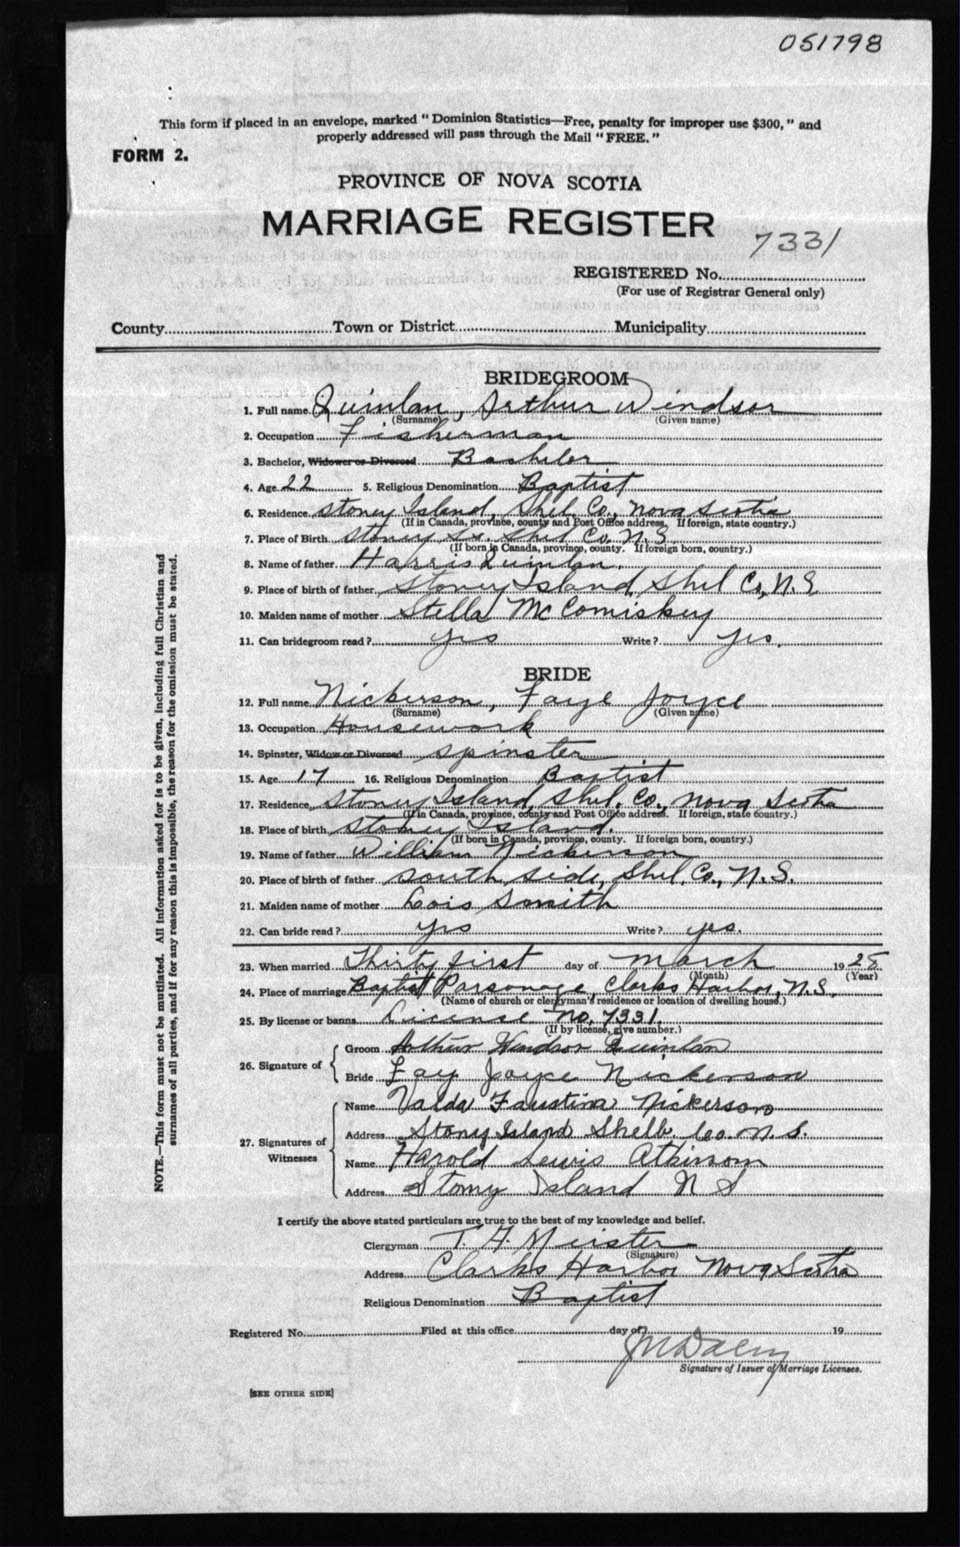 051798
This form if placed in an envelope, marked "Dominion Statistics—Free, penalty for improper use $300," and
properly addressed will pass through the Mail "FREE."
FORM 2.
PROVINCE OF NOVA SCOTIA
MARRIAGE REGISTER
7331
REGISTERED No.
(For use of Registrar General only)
County Town or District Municipality
BRIDEGROOM
1. Full name Quinlan, Arthur Windsor
(Surname) (Given name)
2. Occupation Fisherman
3. Bachelor, Widower or Divorced Bachelor
4. Age 22 5. Religious Denomination Baptist
6. Residence Stoney Island, Shel. Co., Nova Scotia
(If in Canada, province, county and Post Office address. If foreign, state country.)
7. Place of Birth Stoney Is. Shel Co. N.S.
(If born in Canada, province, county. If foreign born, country.)
8. Name of father Harris Quinlan.
9. Place of birth of father Stoney Island, Shel Co, N.S,
10. Maiden name of mother Stella McComiskey
11. Can bridegroom read? yes Write? yes.
BRIDE
12. Full name Nickerson, Faye Joyce
(Surname) (Given name)
13. Occupation Housework
14. Spinster, Widow or Divorced spinster
15. Age 17 16. Religious Denomination Baptist
17. Residence Stoney Island, Shel. Co., Nova Scotia
(If in Canada, province, county and Post Office address. If foreign, state country.)
18. Place of birth Stoney Island.
(If born in Canada, province, county. If foreign born, country.)
19. Name of father William Nickerson
20. Place of birth of father South side, Shel. Co., N.S.
21. Maiden name of mother Lois Smith
22. Can bride read? yes Write? yes.
23. When married Thirty first day of March 1928
(Month) (Year)
24. Place of marriage Baptist Parsonage, Clarks Harbor, N.S.
(Name of church or clergyman's residence or location of dwelling house.)
25. By license or banns License No. 7331.
(If by license, give number.)
26. Signature of Groom Arthur Windsor Quinlan
Bride Fay Joyce Nickerson
27. Signatures of Witnesses Name Valda Faustina Nickerson
Address Stony Island Shelb Co. N.S.
Name Harold Lewis Atkinson
Address Stony Island N S
I certify the above stated particulars are true to the best of my knowledge and belief.
Clergyman T. A. Meister
(Signature)
Address Clarks Harbor Nova Scotia
Religious Denomination Baptist
Registered No. Filed at this office day of 19
Signature of Issuer of Marriage Licenses.
[SEE OTHER SIDE]
NOTE.—This form must not be mutilated. All information asked for is to be given, including full Christian and
surnames of all parties, and if for any reason this is impossible, the reason for the omission must be stated.